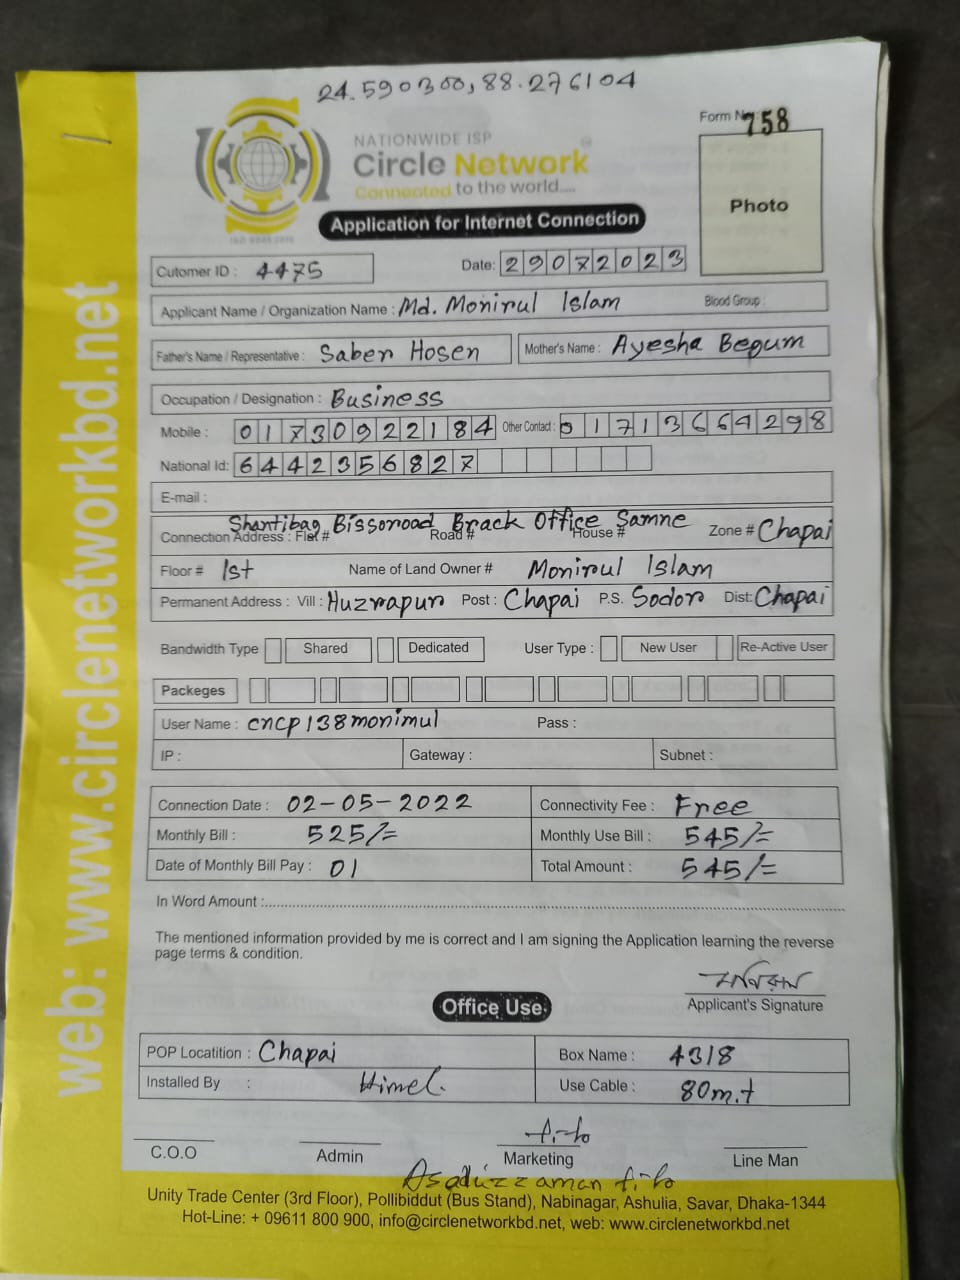 24.590300,88.276104
Form No. 758
NATIONWIDE ISP
Circle Network
Connected to the world....
ISO 9001:2015
Photo
Application for Internet Connection
Cutomer ID : 4475 Date: 29072023
Applicant Name / Organization Name : Md. Monirul Islam Blood Group :
Father's Name / Representative : Saber Hosen Mother's Name : Ayesha Begum
Occupation / Designation : Business
Mobile : 01730922184 Other Contact : 01713664298
National Id: 6442356827
E-mail :
Shantibag Bissoroad Brack Office Samne
Connection Address : Flat # Road # House # Zone # Chapai
Floor # 1st Name of Land Owner # Monirul Islam
Permanent Address : Vill : Huzrapur Post : Chapai P.S. Sodor Dist: Chapai
Bandwidth Type Shared Dedicated User Type : New User Re-Active User
Packeges
User Name : cncp138monirul Pass :
IP : Gateway : Subnet :
Connection Date : 02-05-2022 Connectivity Fee : Free
Monthly Bill : 525/= Monthly Use Bill : 545/=
Date of Monthly Bill Pay : 01 Total Amount : 545/=
In Word Amount :
The mentioned information provided by me is correct and I am signing the Application learning the reverse
page terms & condition.
মনিরুল
Applicant's Signature
Office Use:
POP Locatition : Chapai Box Name : 4318
Installed By : Himel. Use Cable : 80m.t
C.O.O Admin Marketing Line Man
Asaduzzaman
Unity Trade Center (3rd Floor), Pollibiddut (Bus Stand), Nabinagar, Ashulia, Savar, Dhaka-1344
Hot-Line: + 09611 800 900, info@circlenetworkbd.net, web: www.circlenetworkbd.net
web: www.circlenetworkbd.net